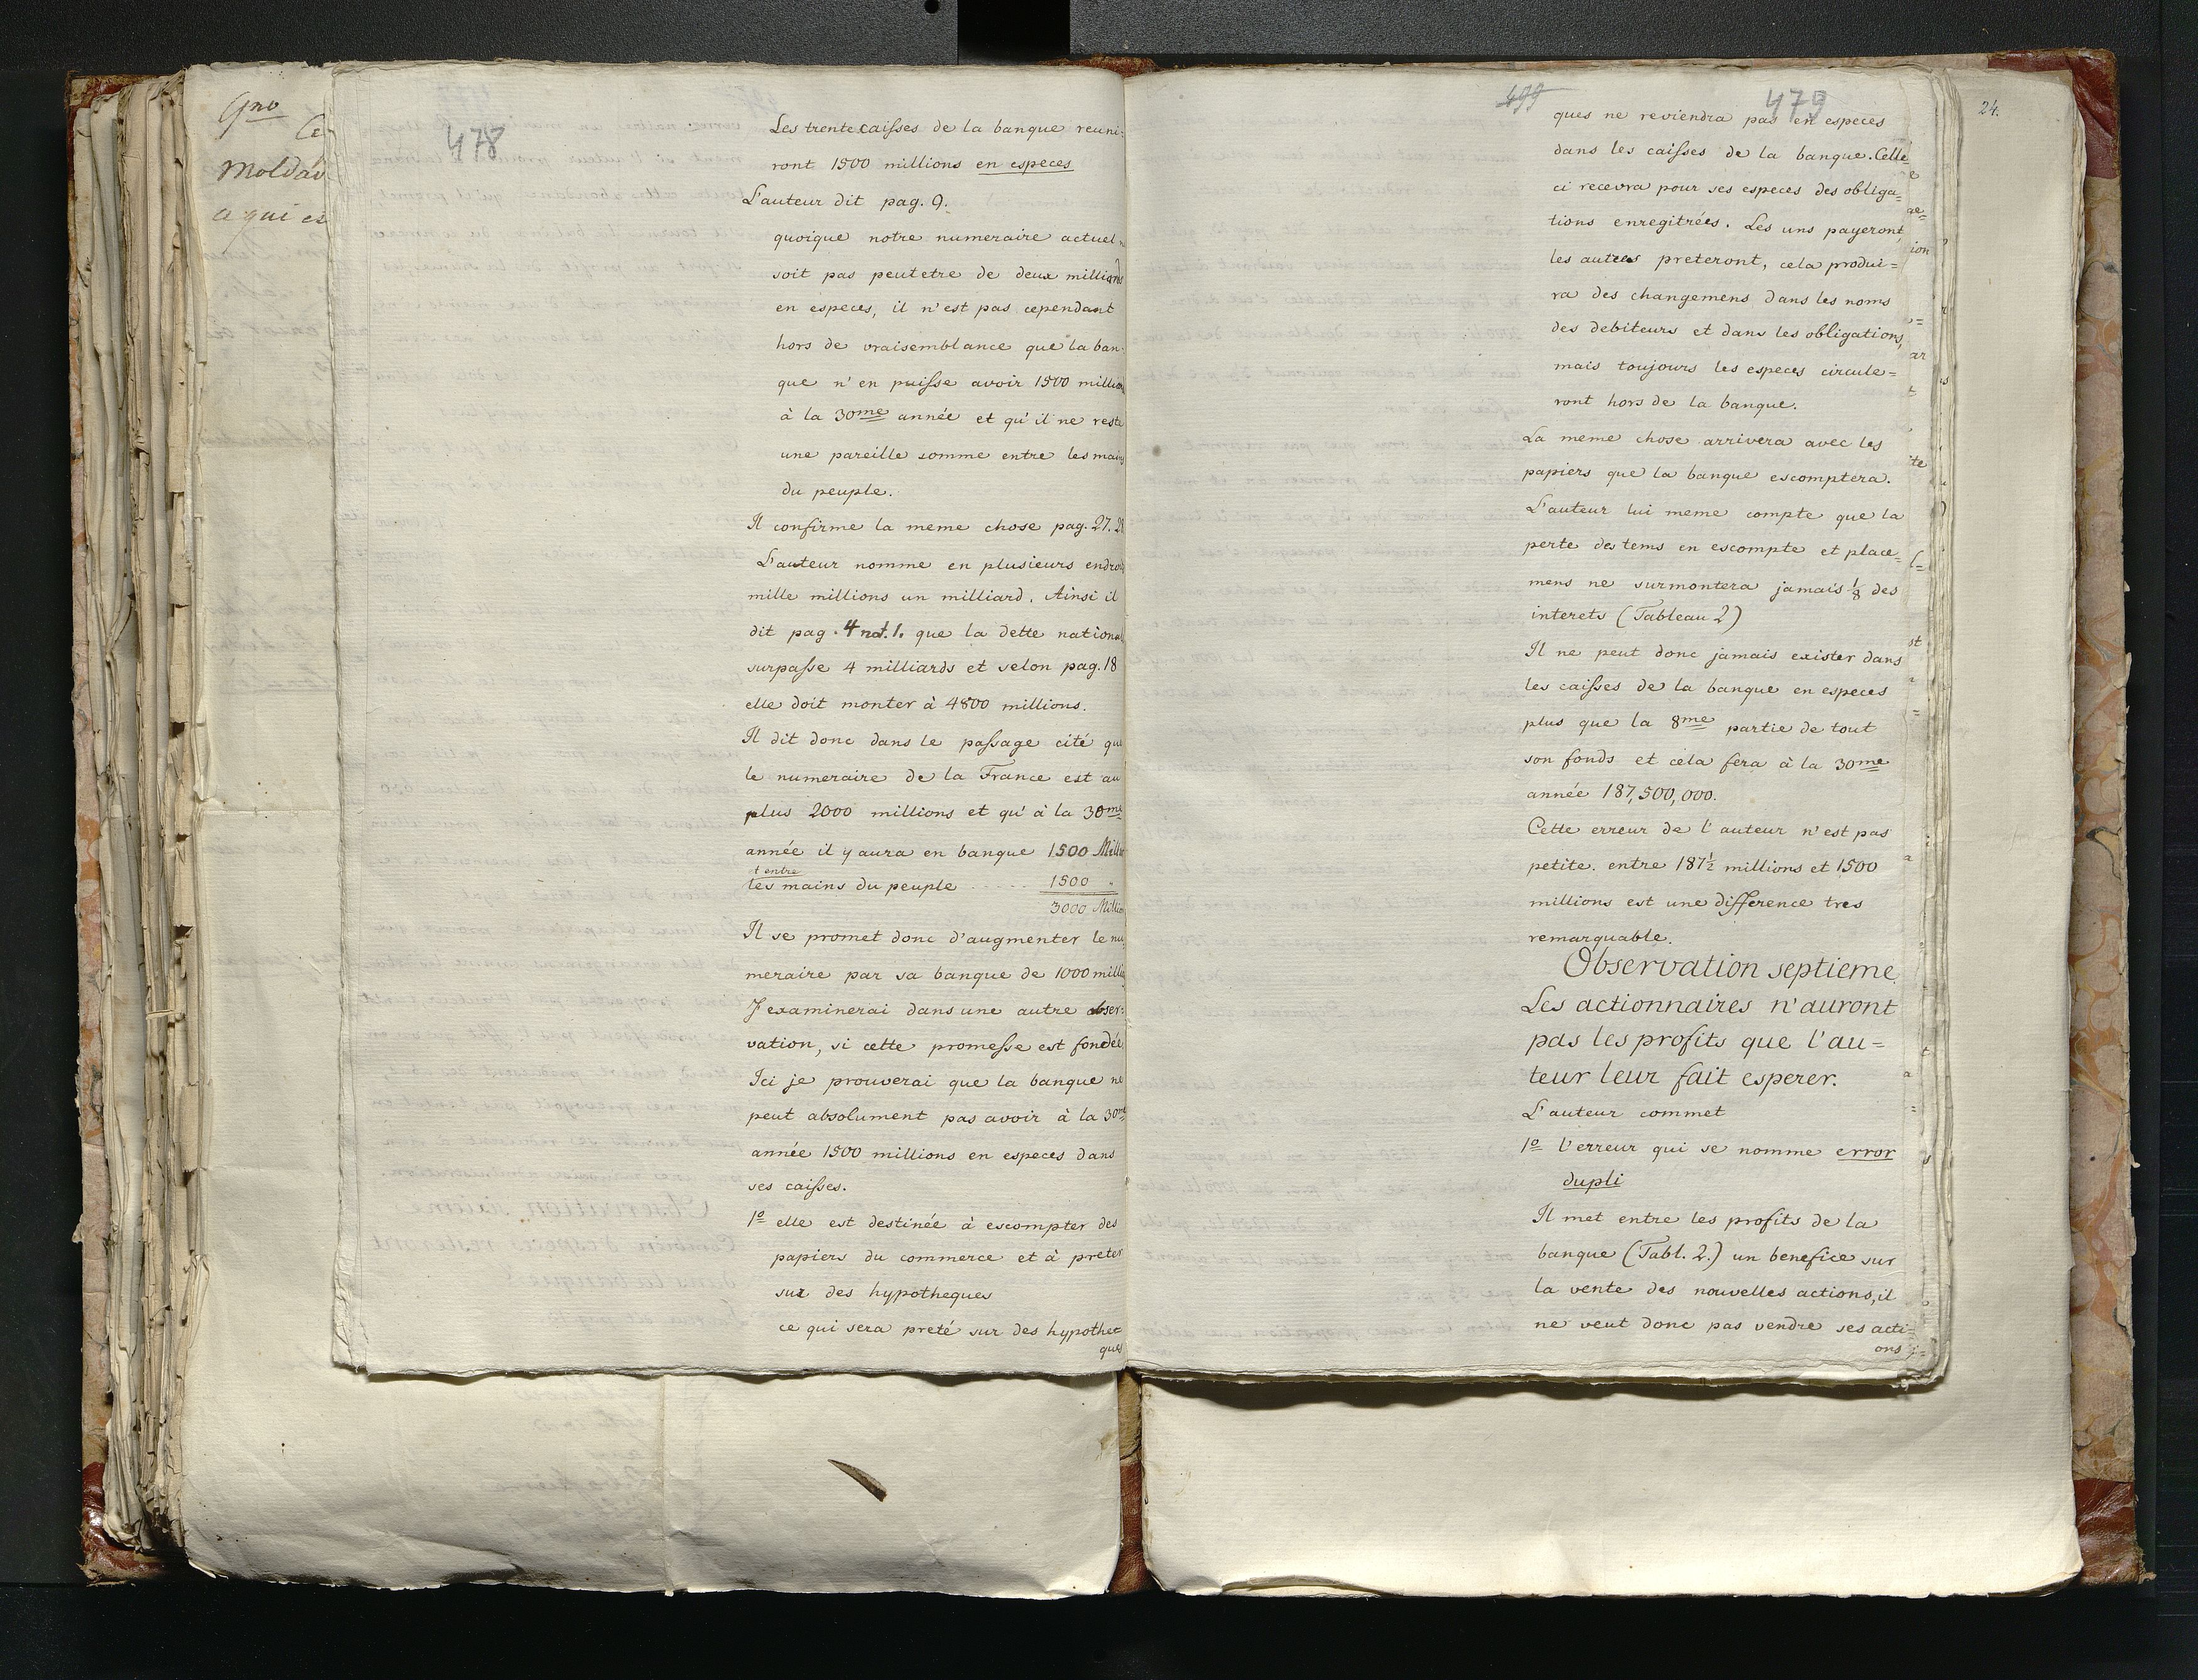 478
Les trente caisses de la banque reuni-
ront 1500 millions en especes
L'auteur dit pag. 9.
quoique notre numeraire actuel
soit pas peutetre de deux milliards
en especes, il n'est pas cependant
hors de vraisemblance que la ban-
que n'en puisse avoir 1500 millions
à la 30me année et qu'il ne reste
une pareille somme entre les mains
du peuple.
Il confirme la meme chose pag. 27. 28
L'auteur nomme en plusieurs endroits
mille millions un milliard. Ainsi il
dit pag. 4 not. 1. que la dette national
surpasse 4 milliards et selon pag. 18
elle doit monter à 4800 millions.
Il dit donc dans le passage cité que
le numeraire de la France est au
plus 2000 millions et qu'à la 30me
année il y aura en banque 1500 Mill
et entre
les mains du peuple ..... 1500 "
3000 Million
Il se promet donc d'augmenter le nu-
meraire par sa banque de 1000 milli
J'examinerai dans une autre obser-
vation, si cette promesse est fondée,
Ici je prouverai que la banque ne
peut absolument pas avoir à la 30me
année 1500 millions en especes dans
ses caisses.
1o elle est destinée à escompter des
papiers du commerce et à preter
sur des hypotheques
ce qui sera preté sur des hypothe-
ques
499 479
ques ne reviendra pas en especes
dans les caisses de la banque. Celle-
ci recevra pour ses especes des obliga=
tions enregitrées. Les uns payeront,
les autres preteront, cela produi=
ra des changemens dans les noms
des debiteurs et dans les obligations,
mais toujours les especes circule=
ront hors de la banque.
La meme chose arrivera avec les
papiers que la banque escomptera.
L'auteur lui meme compte que la
perte des tems en escompte et place=
mens ne surmontera jamais 1/8 des
interets (Tableau 2)
Il ne peut donc jamais exister dans
les caisses de la banque en especes
plus que la 8me partie de tout
son fonds et cela fera à la 30me
année 187,500,000.
Cette erreur de l'auteur n'est pas
petite. entre 187 1/2 millions et 1500
millions est une difference tres
remarquable.
Observation septieme.
Les actionnaires n'auront
pas les profits que l'au=
teur leur fait esperer.
L'auteur commet
1o l'erreur qui se nomme error
dupli
Il met entre les profits de la
banque (Tabl. 2.) un benefice sur
la vente des nouvelles actions, il
ne veut donc pas vendre ses acti=
ons
24.